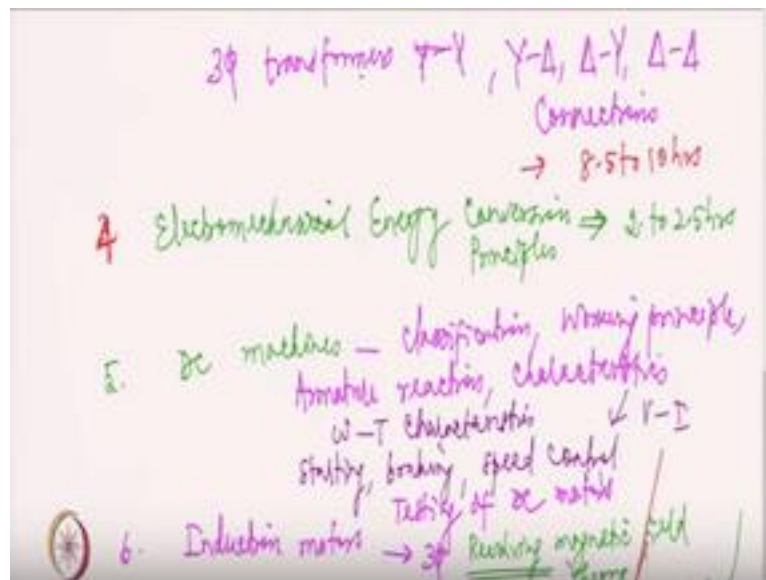 3φ transformers Y-Y, Y-Δ, Δ-Y, Δ-Δ
Connections
→ 8.5 to 10 hrs
4 Electromechanical Energy Conversion ⇒ 2 to 2.5 hrs
Principles
5. DC machines — Classification, Working principle,
Armature reaction, characteristics
ω-T characteristics ↙ V-I
Starting, braking, speed control
Testing of DC motors
6. Induction motors → 3φ Revolving magnetic field